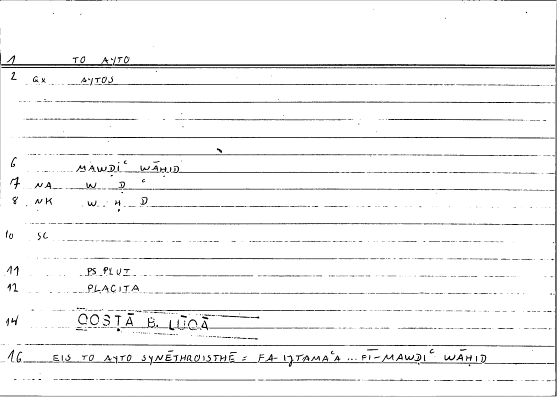 1 TO AYTO
2 GX AYTOS
6 MAWḌIᶜ WĀḤID
7 NA W Ḍ ᶜ
8 NK W Ḥ D
10 SC
11 PS.PLUT
12 PLACITA
14 QOSṬĀ B. LŪQĀ
16 EIS TO AYTO SYNĒTHROISTHĒ = FA-IǦTAMAᶜA ... FĪ-MAWḌIᶜ WĀḤID